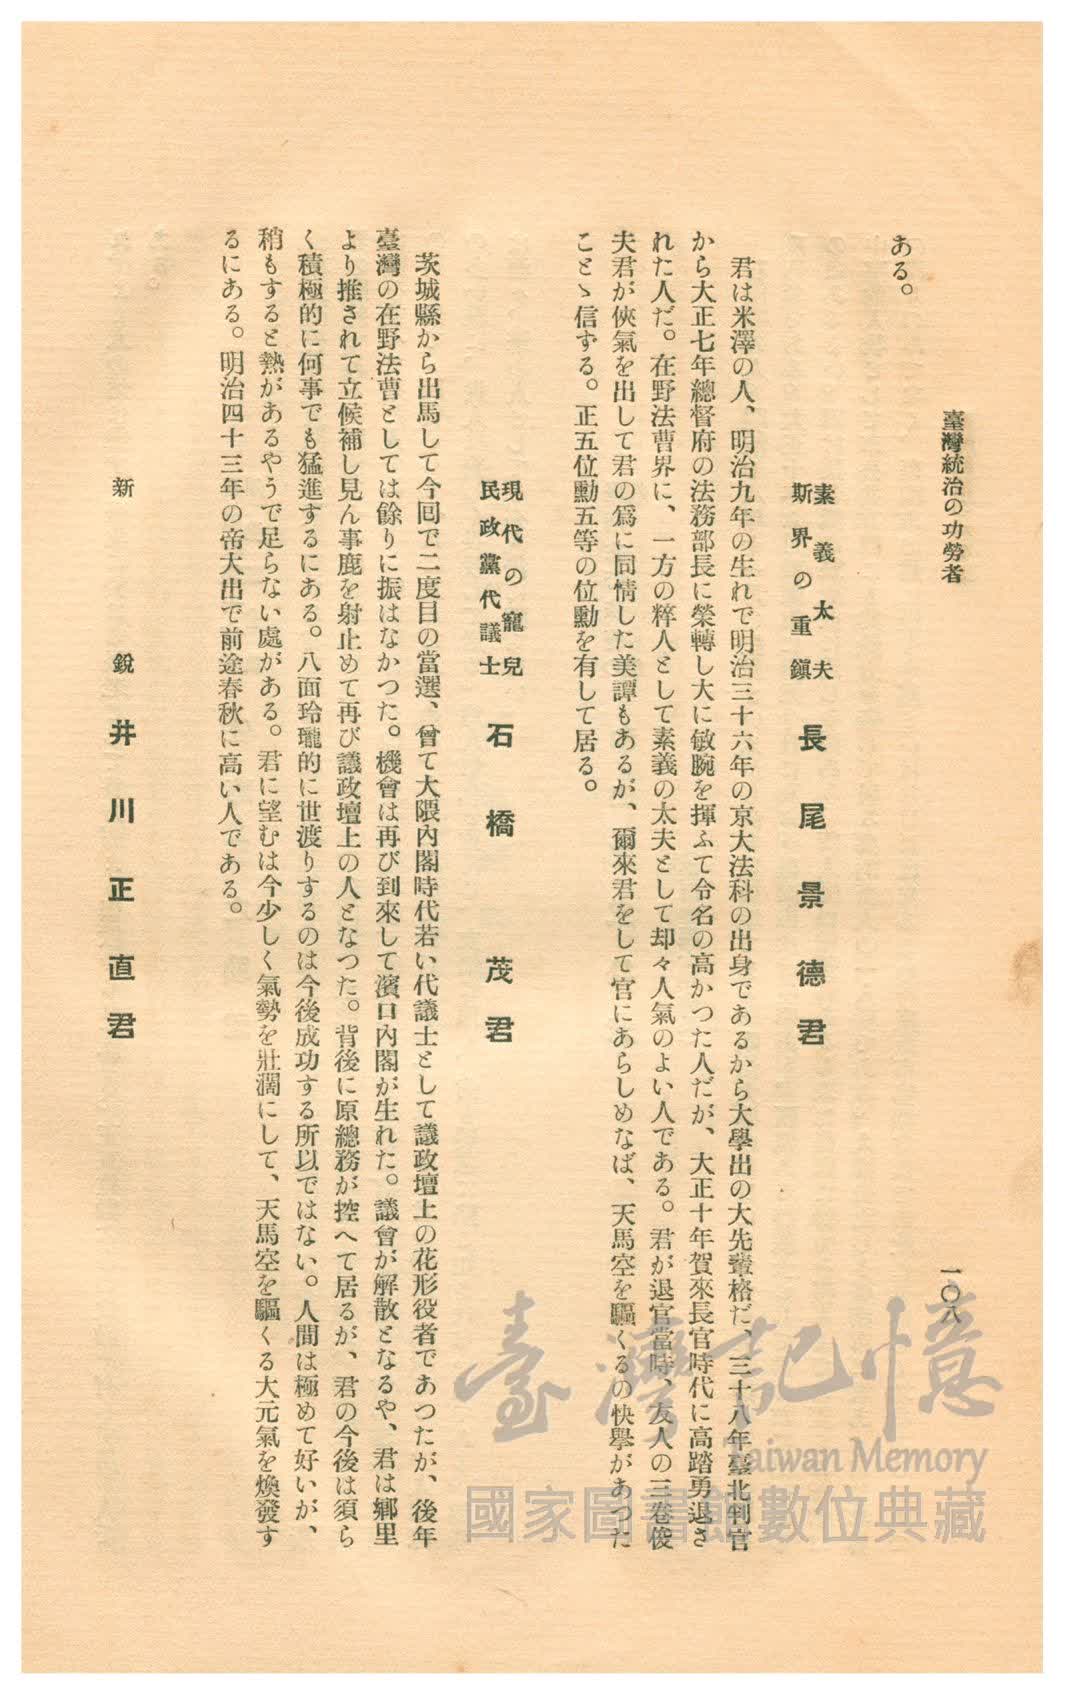 臺灣統治の功勞者
一〇八
ある。
素義太夫
斯界の重鎭
長尾景德君
君は米澤の人、明治九年の生れで明治三十六年の京大法科の出身であるから大學出の大先輩格だ、三十八年臺北判官
から大正七年總督府の法務部長に榮轉し大に敏腕を揮ふて令名の高かつた人だが、大正十年賀來長官時代に高踏勇退さ
れた人だ。在野法曹界に、一方の粹人として素義の太夫として却々人氣のよい人である。君が退官當時、友人の三卷俊
夫君が俠氣を出して君の爲に同情した美譚もあるが、爾來君をして官にあらしめなば、天馬空を驅くるの快擧があつた
ことゝ信ずる。正五位勳五等の位勳を有して居る。
現代の寵兒
民政黨代議士
石橋茂君
茨城縣から出馬して今回で二度目の當選、曾て大隈內閣時代若い代議士として議政壇上の花形役者であつたが、後年
臺灣の在野法曹としては餘りに振はなかつた。機會は再び到來して濱口內閣が生れた。議會が解散となるや、君は鄉里
より推されて立候補し見ん事鹿を射止めて再び議政壇上の人となつた。背後に原總務が控へて居るが、君の今後は須ら
く積極的に何事でも猛進するにある。八面玲瓏的に世渡りするのは今後成功する所以ではない。人間は極めて好いが、
稍もすると熱があるやうで足らない處がある。君に望むは今少しく氣勢を壯濶にして、天馬空を驅くる大元氣を煥發す
るにある。明治四十三年の帝大出で前途春秋に高い人である。
新銳
井川正直君
臺灣記憶
Taiwan Memory
國家圖書館數位典藏